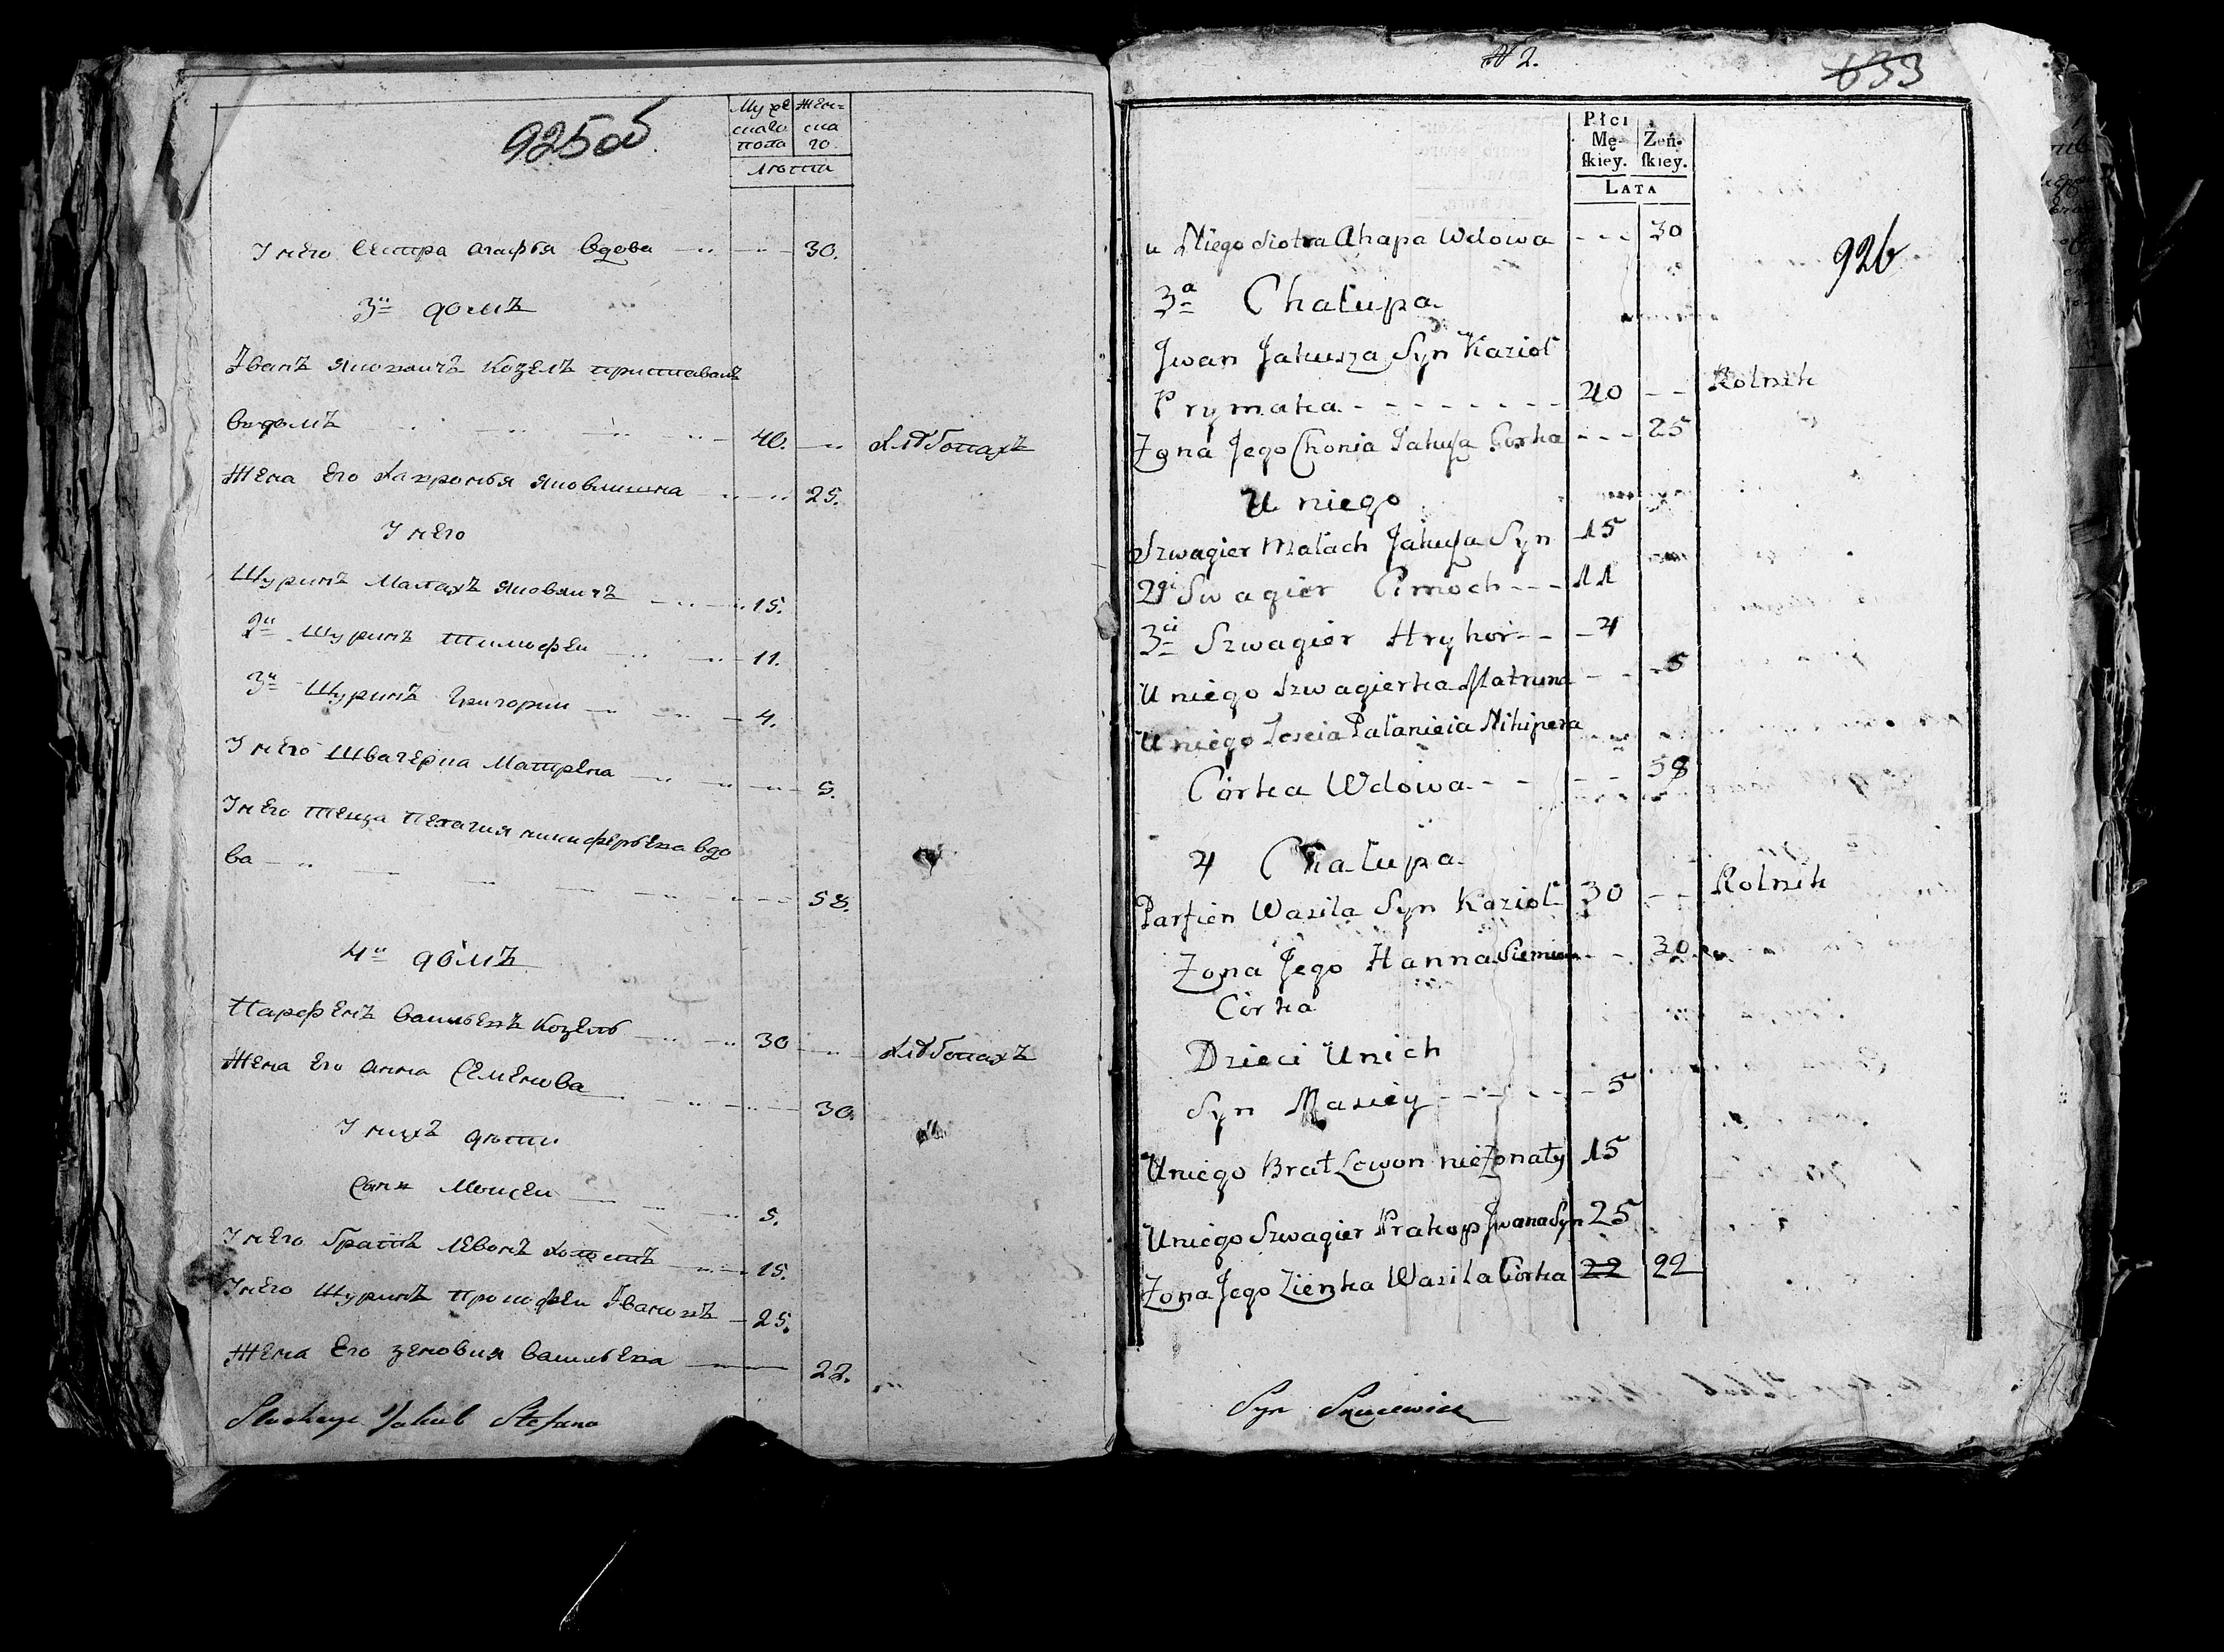 925об
Мужескаго пола
Женскаго
Лѣта
У него Сестра Агафья вдова 30.
3й домъ
Иванъ Яковличъ Козелъ
въ домъ 40. Хлѣбопахъ
Жена Его Яковливна 25.
У него
Шуринъ Малахъ Яковличъ 15.
2й Шуринъ Тимофей 11.
3й Шуринъ Григорий 4.
У него Швагерка Матрена 5.
У него теща Пелагия никиферьвна вдо
ва 58.
4й домъ
Парфенъ Васильевъ Козелъ 30 Хлѣбопахъ
Жена Его Анна Семенова 30.
У нихъ дѣти
Сынъ Моисей 5.
У него братъ Левонъ холостъ 15.
У него Шуринъ Прокофей Ивановъ 25.
Жена Его Зеновия Васильевна 22.
Jakub Stefana
№ 2.
633
Płci Męſkiey.
Żeńſkiey.
LATA
926
u Niego Siotra Ahapa Wdowa 30
3a Chałupa
Jwan Jakusza Syn Kazioł
Prymaka 40 Rolnik
Zona Jego Chonia Jakuſa Corka 25
U niego
Szwagier Małach Jakuſa Syn 15
2gi Swagier Cimoch 11
3ci Szwagier Hryhor 4
U niego Szwagierka Matruna 5
U niego Teścia Pałanieia Nikipera
Córka Wdowa 58
4 Chałupa
Parfien Wasila Syn Kazioł 30 Rolnik
Zona Jego Hanna Siemiona 30
Córka
Dzieci Unich
Syn Masiey 5
Uniego Brat Lewon nieżonaty 15
Uniego Szwagier Prakop Jwana Syn 25
Zona Jego Zienka Wasila Córka 22 22
Syn